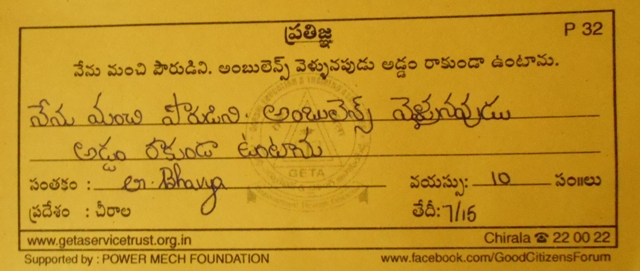 ప్రతిజ్ఞ P 32
నేను మంచి పౌరుడిని. అంబులెన్స్ వెళ్ళునపుడు అడ్డం రాకుండా ఉంటాను.
నేను మంచి పౌరుడిని. అంబులెన్స్ వెళ్ళునపుడు
అడ్డం రాకుండా ఉంటాను
సంతకం : Bhavya వయస్సు: 10 సం॥లు
ప్రదేశం : చీరాల తేదీ: 7/15
GETA
www.getaservicetrust.org.in Chirala ☎ 22 00 22
Supported by : POWER MECH FOUNDATION www.facebook.com/GoodCitizensForum